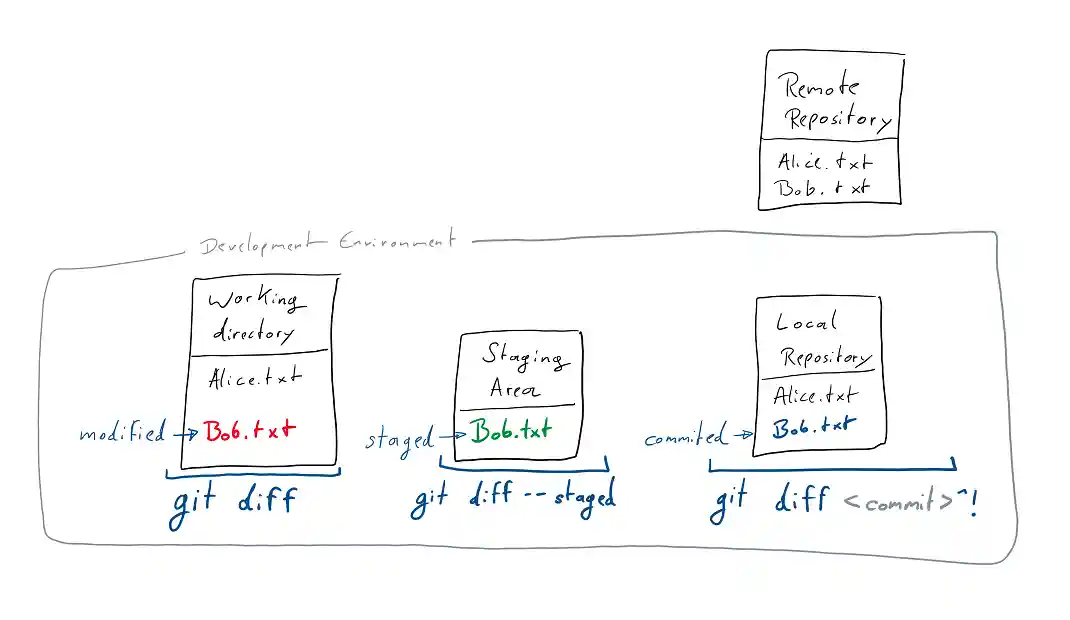 Remote
Repository
Alice.txt
Bob.txt
Development Environment
Working
directory
Alice.txt
modified
Bob.txt
git diff
Staging
Area
staged
Bob.txt
git diff --staged
Local
Repository
Alice.txt
commited
Bob.txt
git diff <commit>^!